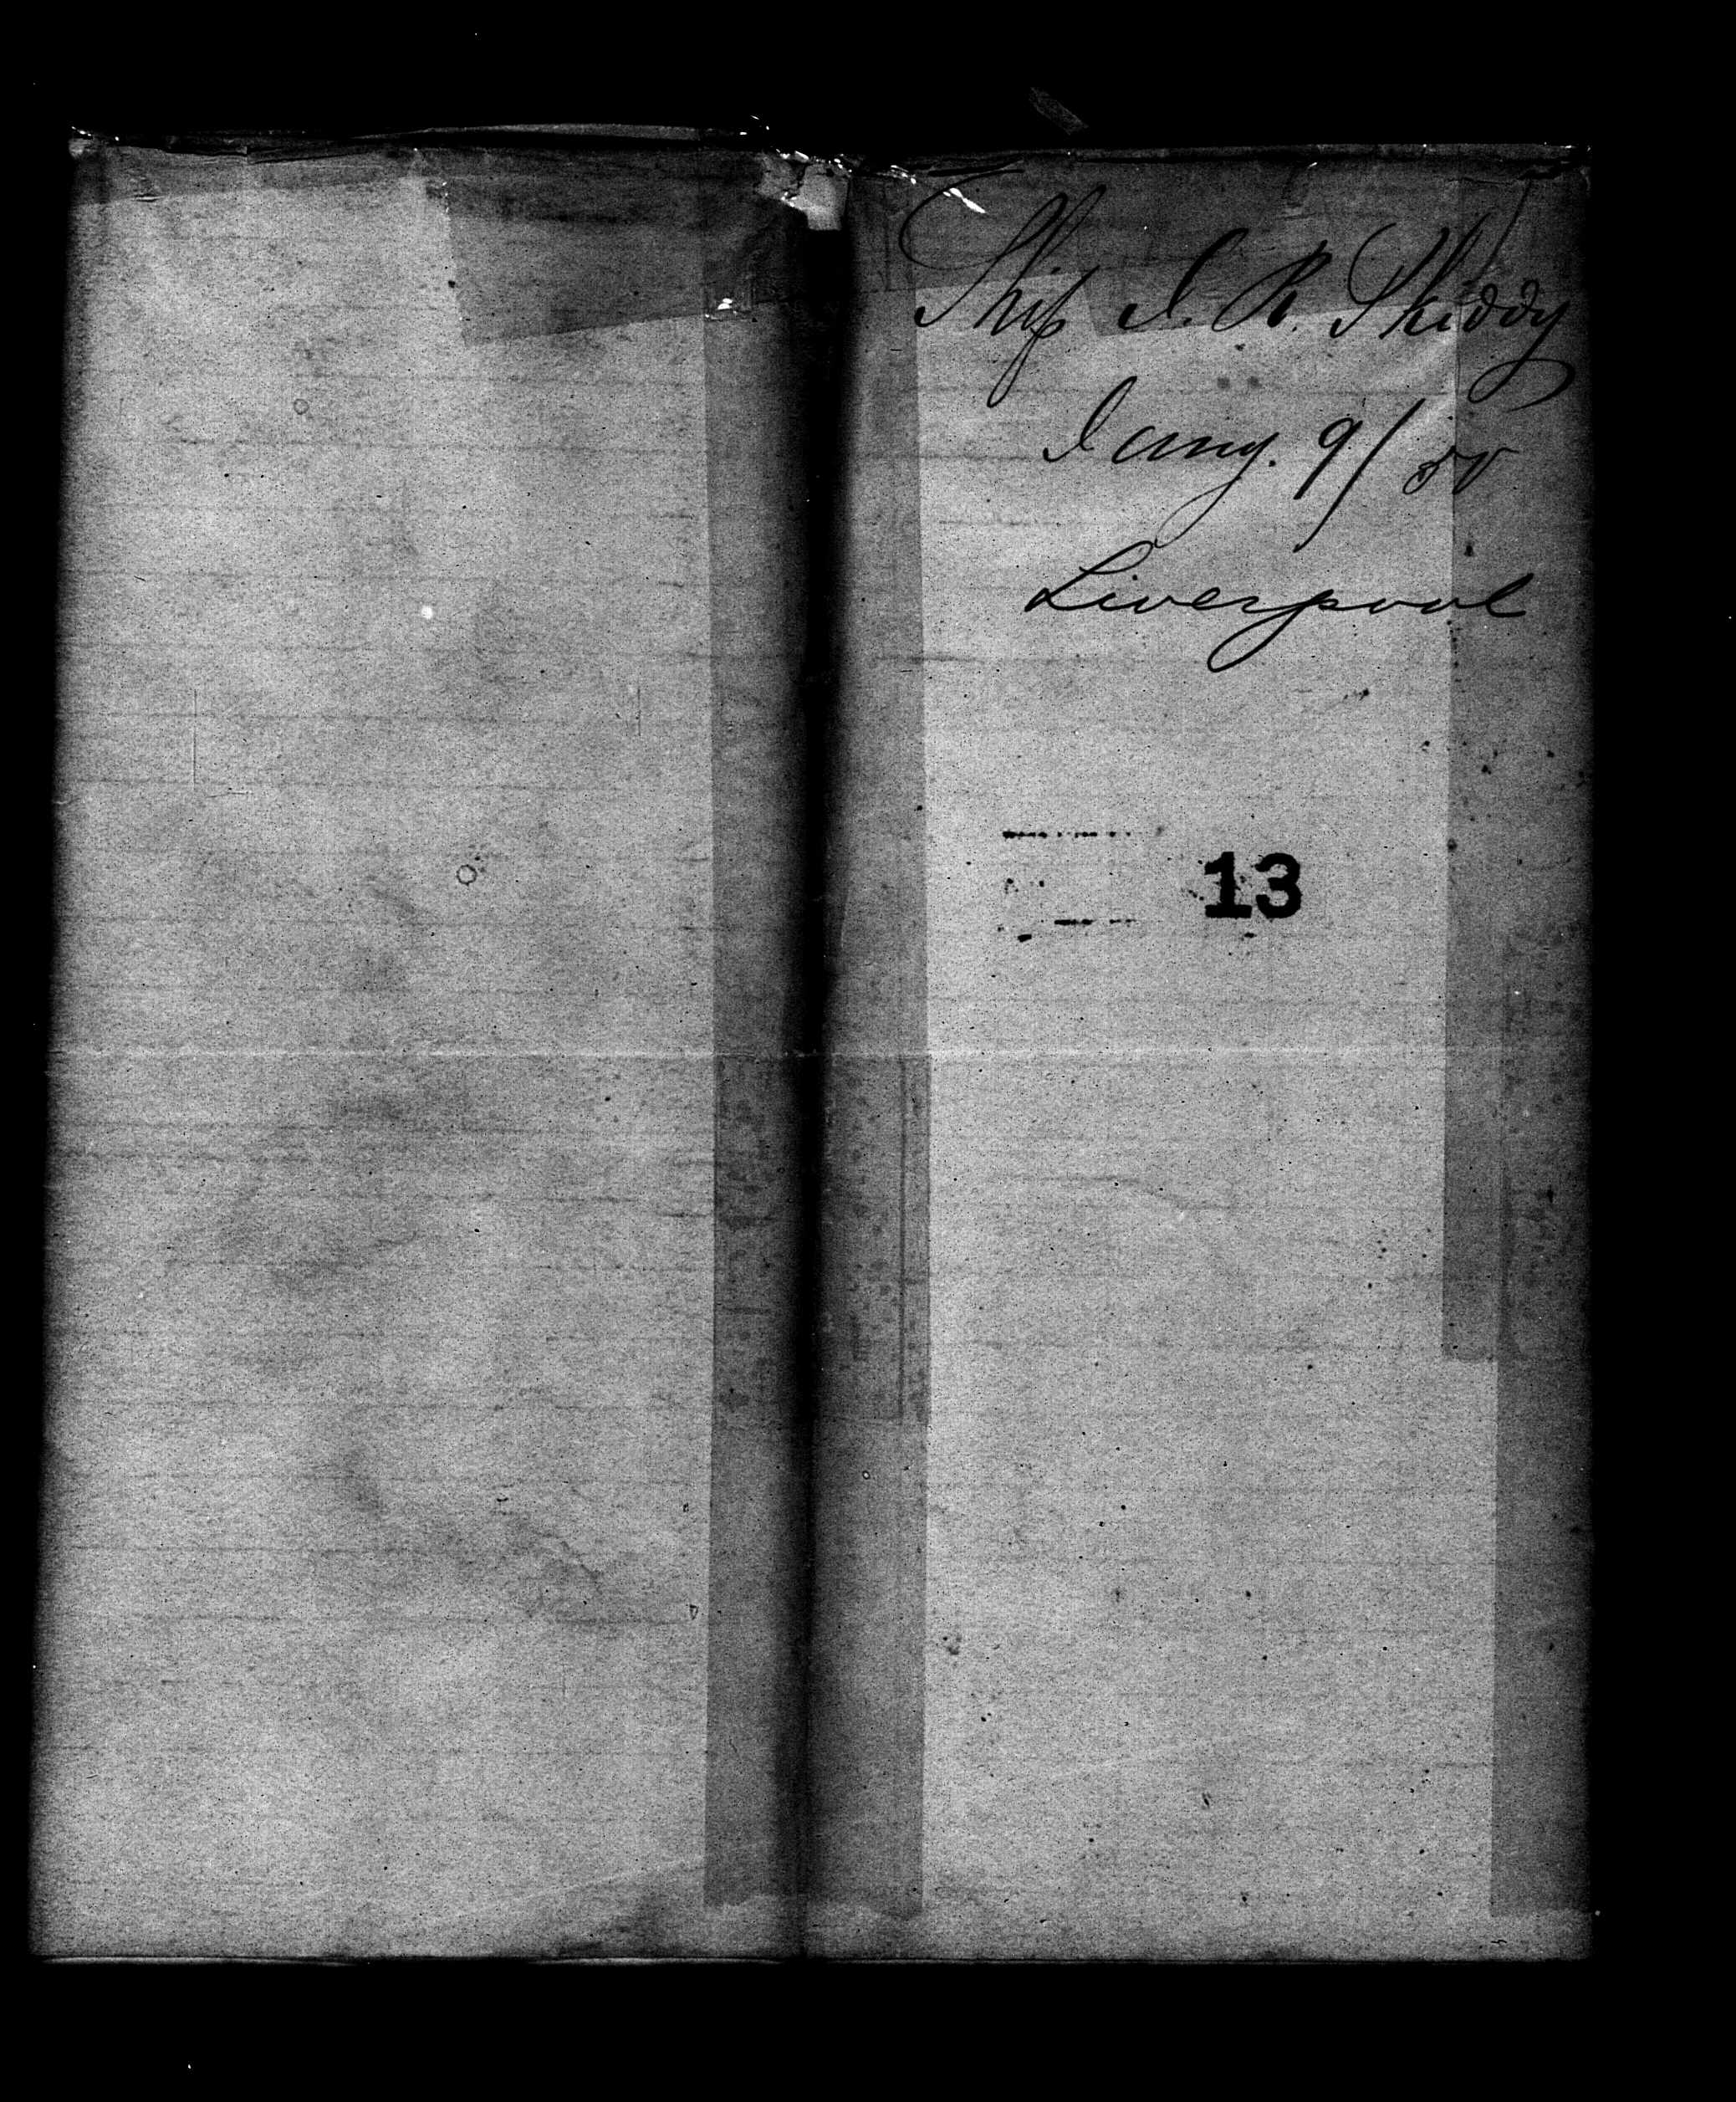 Ship I. R. Skiddy
Jany. 9/50
Liverpool
13